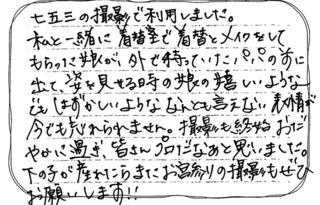 七五三の撮影で利用しました。
私と一緒に着替室で着替とメイクをして
もらった娘が、外で待っていたパパの前に
出て、姿を見せる時の娘の嬉しいような
でもはずかしいようななんとも言えない表情が
今でも忘れられません。撮影も終始おだ
やかに過ぎ、皆さんプロだなあと思いました。
下の子が産れたらまたお宮参りの撮影もぜひ
お願いします!!